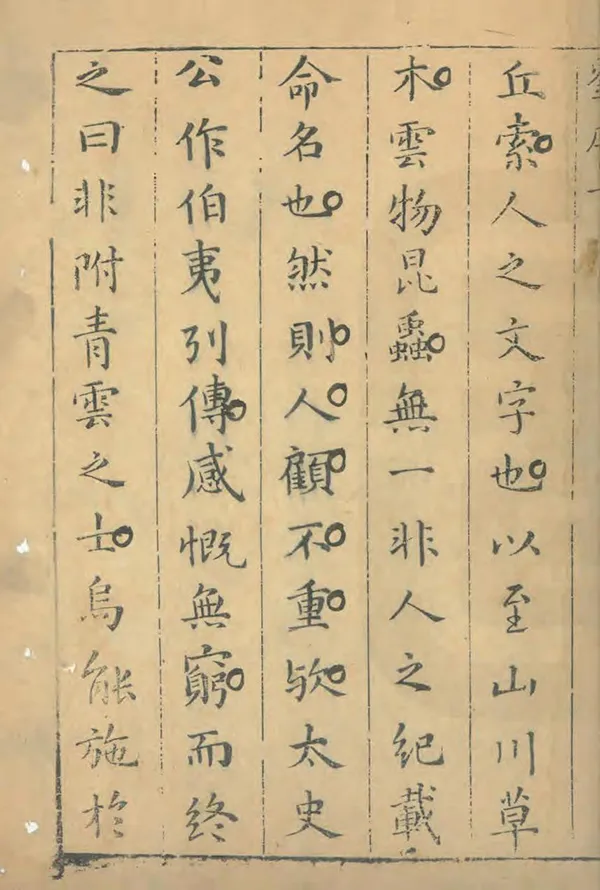 丘索人之文字也以至山川草
木雲物昆蟲無一非人之紀載
命名也然則人顧不重欤太史
公作伯夷列傳感慨無窮而終
之曰非附青雲之士烏能施於